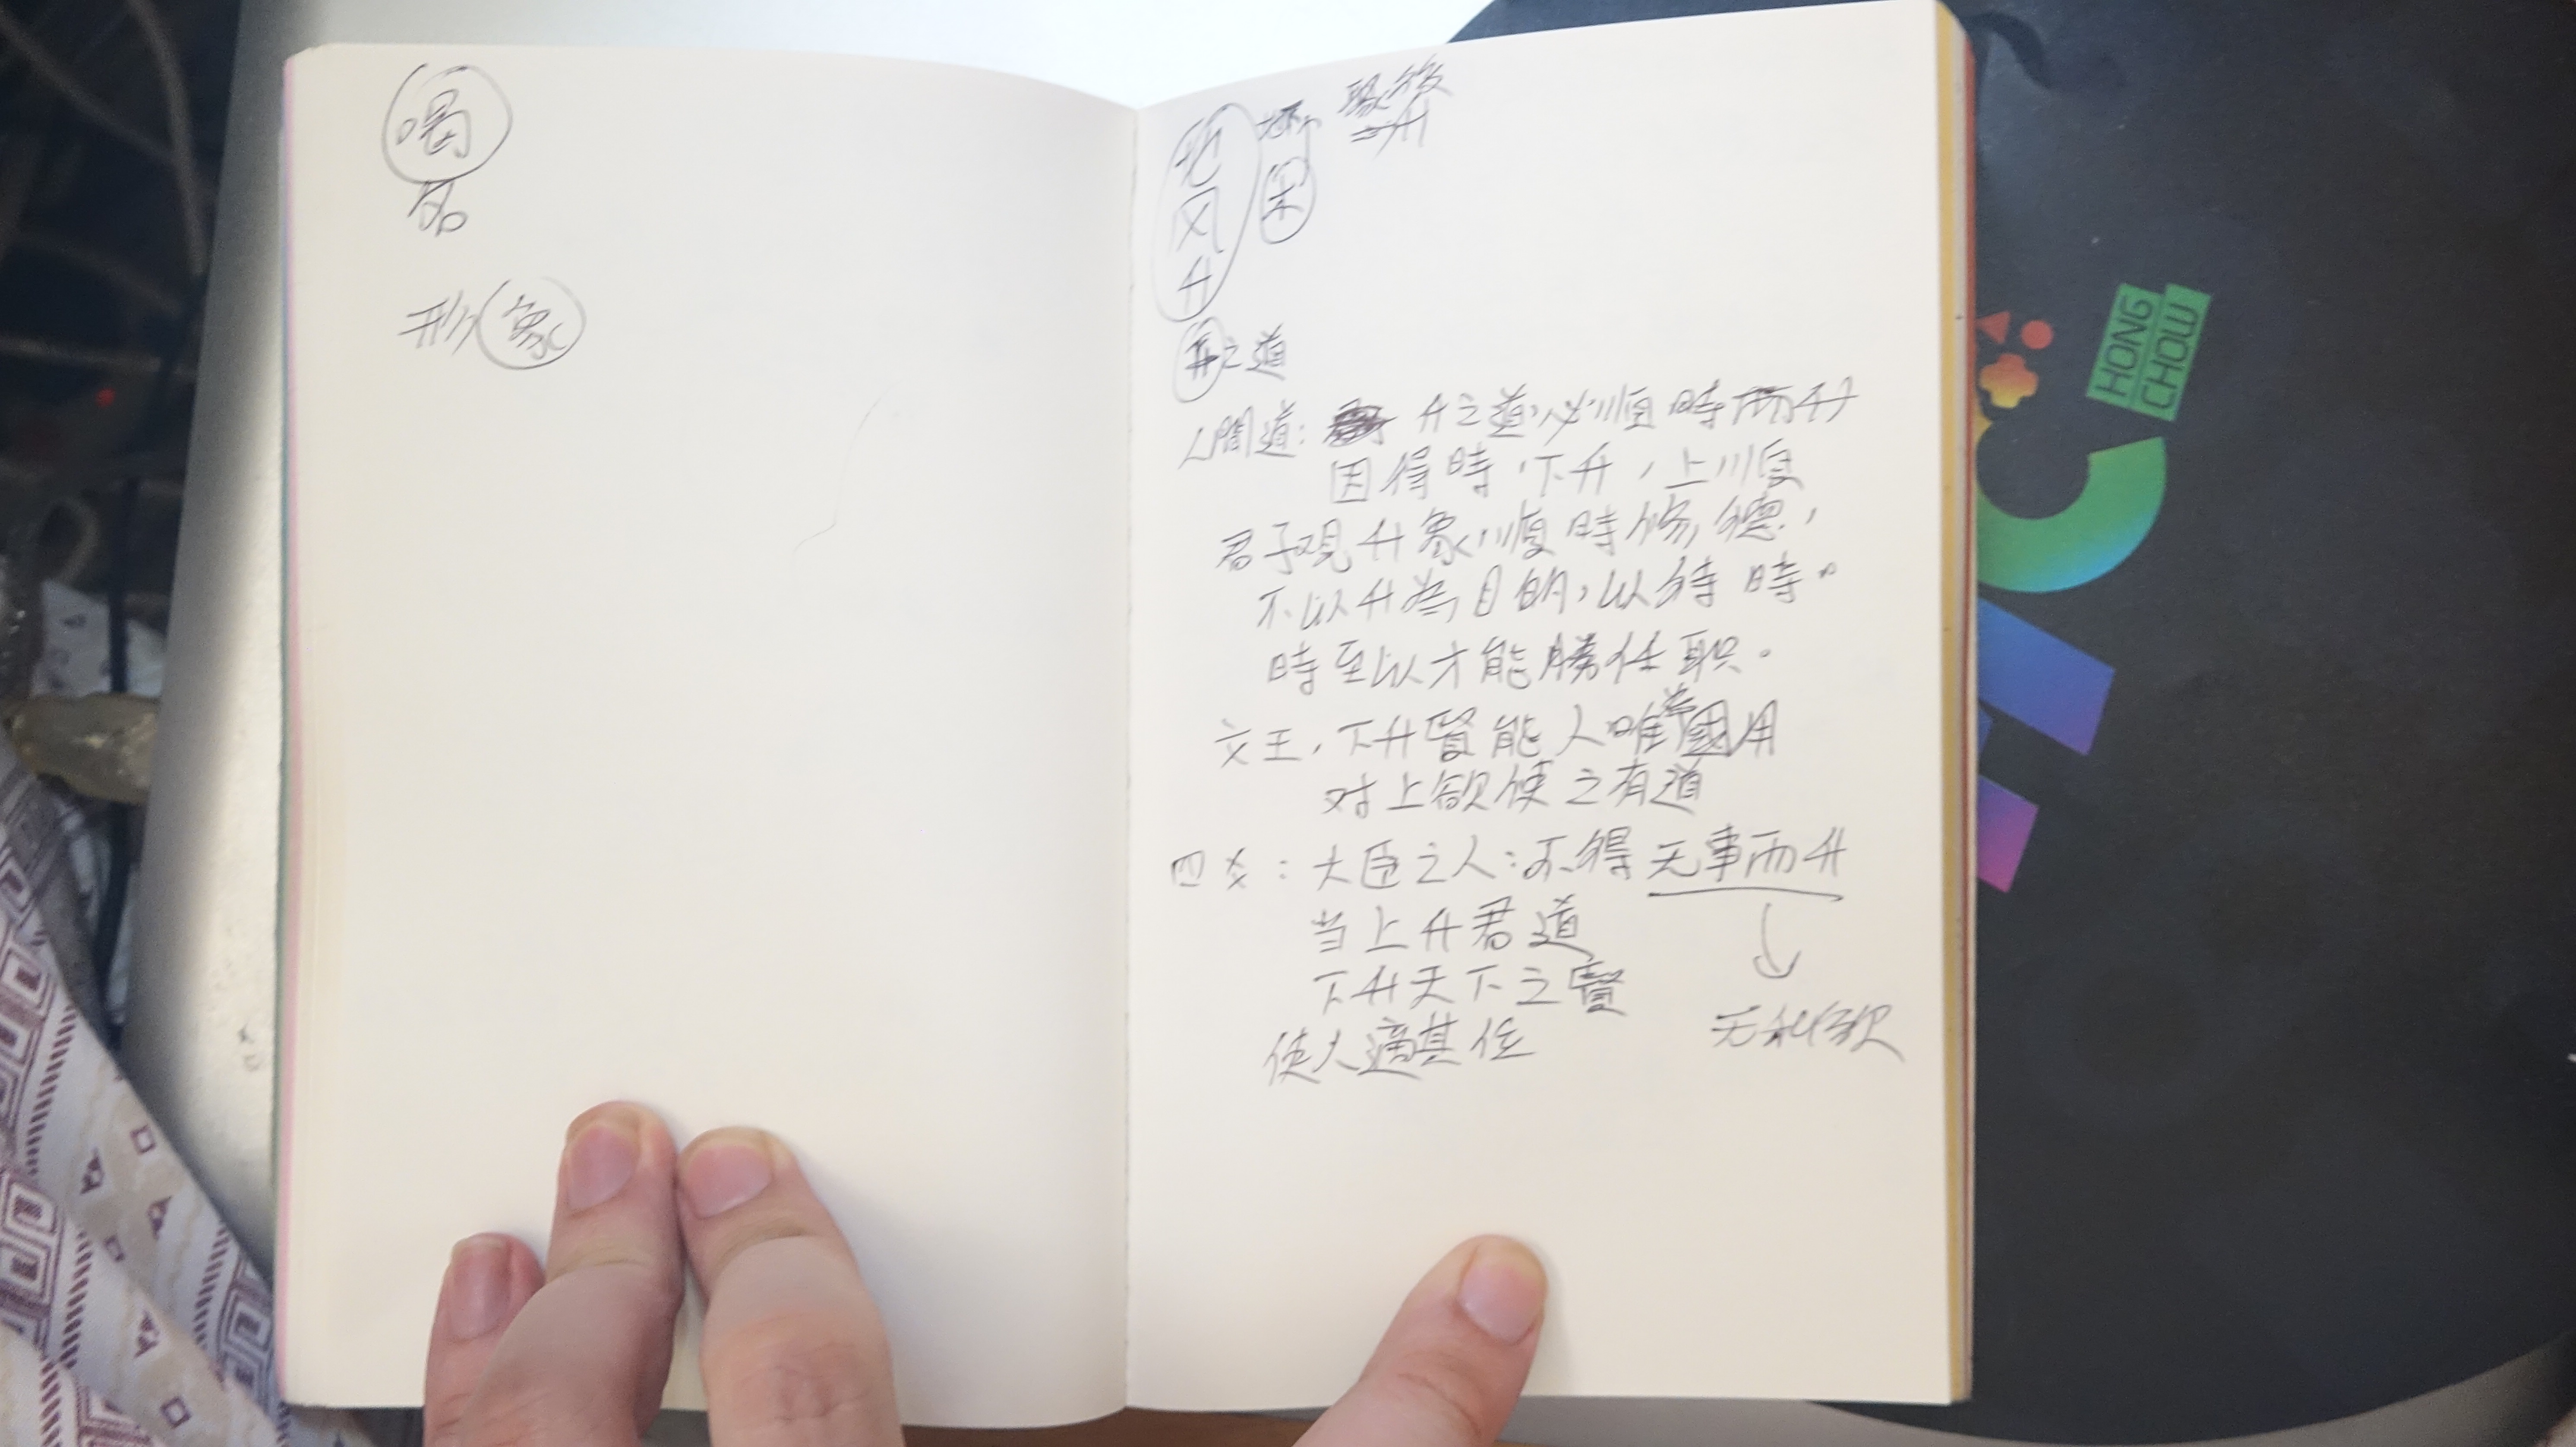 喝
名
形象
地风升
困
聚後
升
升之道
人間道: 升之道,必順時而升
因得時,下升,上順
君子观升象,順時修德,
不以升為目的,以待時。
時至以才能勝任职。
文王,下升賢能人唯為國用
对上欲使之有道
四爻:大臣之人:不得无事而升
当上升君道
下升天下之賢
使人適其位
无私欲
HONG
CHOW